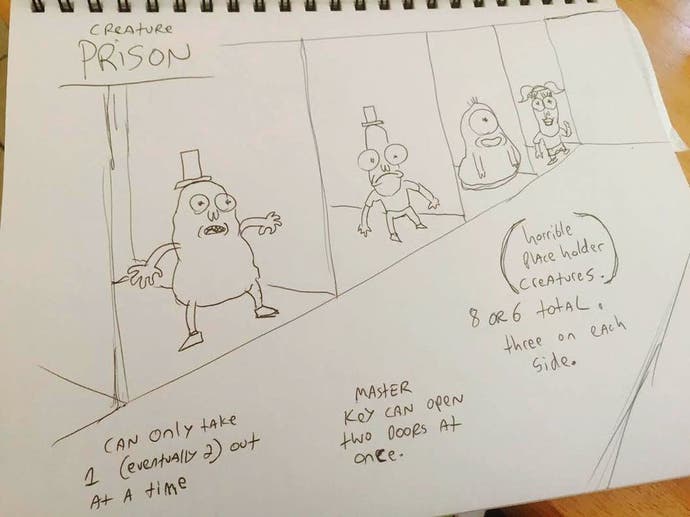 CREATURE
PRISON
(horrible
Place holder
CREATURES.)
8 OR 6 total.
three on each
side.
MASTER
KEY CAN OPEN
two DOORS At
once.
CAN Only tAKE
1 (eventually 2) out
At A time